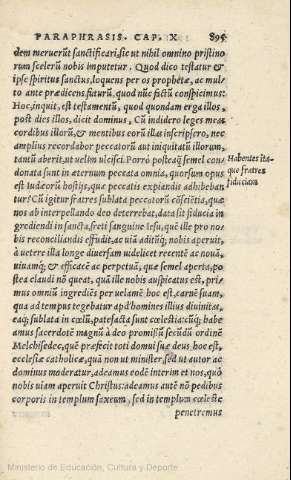 PARAPHRASIS. CAP. X. 895
dem meruerūt sanctificari, sic ut nihil omnino pristino-
rum scelerū nobis imputetur. Quod dico testatur &
ipse spiritus sanctus, loquens per os prophetæ, ac mul-
to ante prædicens futurū, quod nūc factū conspicimus:
Hoc, inquit, est testamentū, quod quondam erga illos,
post dies illos, dicit dominus, Cū indidero leges meas
cordibus illorū, & mentibus eorū illas inscripsero, nec
amplius recordabor peccatorū aut iniquitatū illorum,
tantū aberit, ut uelim ulcisci. Porrò posteaq̄ semel con-
donata sunt in æternum peccata omnia, quorsum opus
est Iudæorū hostijs, quæ peccatis expiandis adhibeban
tur? Cū igitur fratres sublata peccatorū cōscietia, quæ
nos ab interpellando deo deterrebat, data sit fiducia in
grediendi in sancta, freti sanguine Iesu, quē ille pro no-
bis reconciliandis effudit, ac uiā aditūq; nobis aperuit,
à uetere illa longe diuersam uidelicet recentē ac nouā,
uiuamq; & efficacē ac perpetuā, quæ semel aperta, po-
stea claudi nō queat, quā ille nobis auspicatus est, pri-
mus omniū ingrediēs per uelamē hoc est, carnē suam,
qua ad tempus tegebatur apd' homines illius diuinitas,
eaq; sublata in cœlū, patefacta sunt cœlestia: cūq; habe-
amus sacerdotē magnū à deo promissū secūdū ordinē
Melchisedec, quē præfecit toti domui suæ deus, hoc est,
ecclesiæ catholicæ, quā non ut minister, sed ut autor ac
dominus moderatur, adeamus eodē interim et nos, quò
nobis uiam aperuit Christus: adeamus autē nō pedibus
corporis in templum saxeum, sed in templum cœleste
penetremus
Habentes ita-
que fratres
fiduciam
Ministerio de Educación, Cultura y Deporte